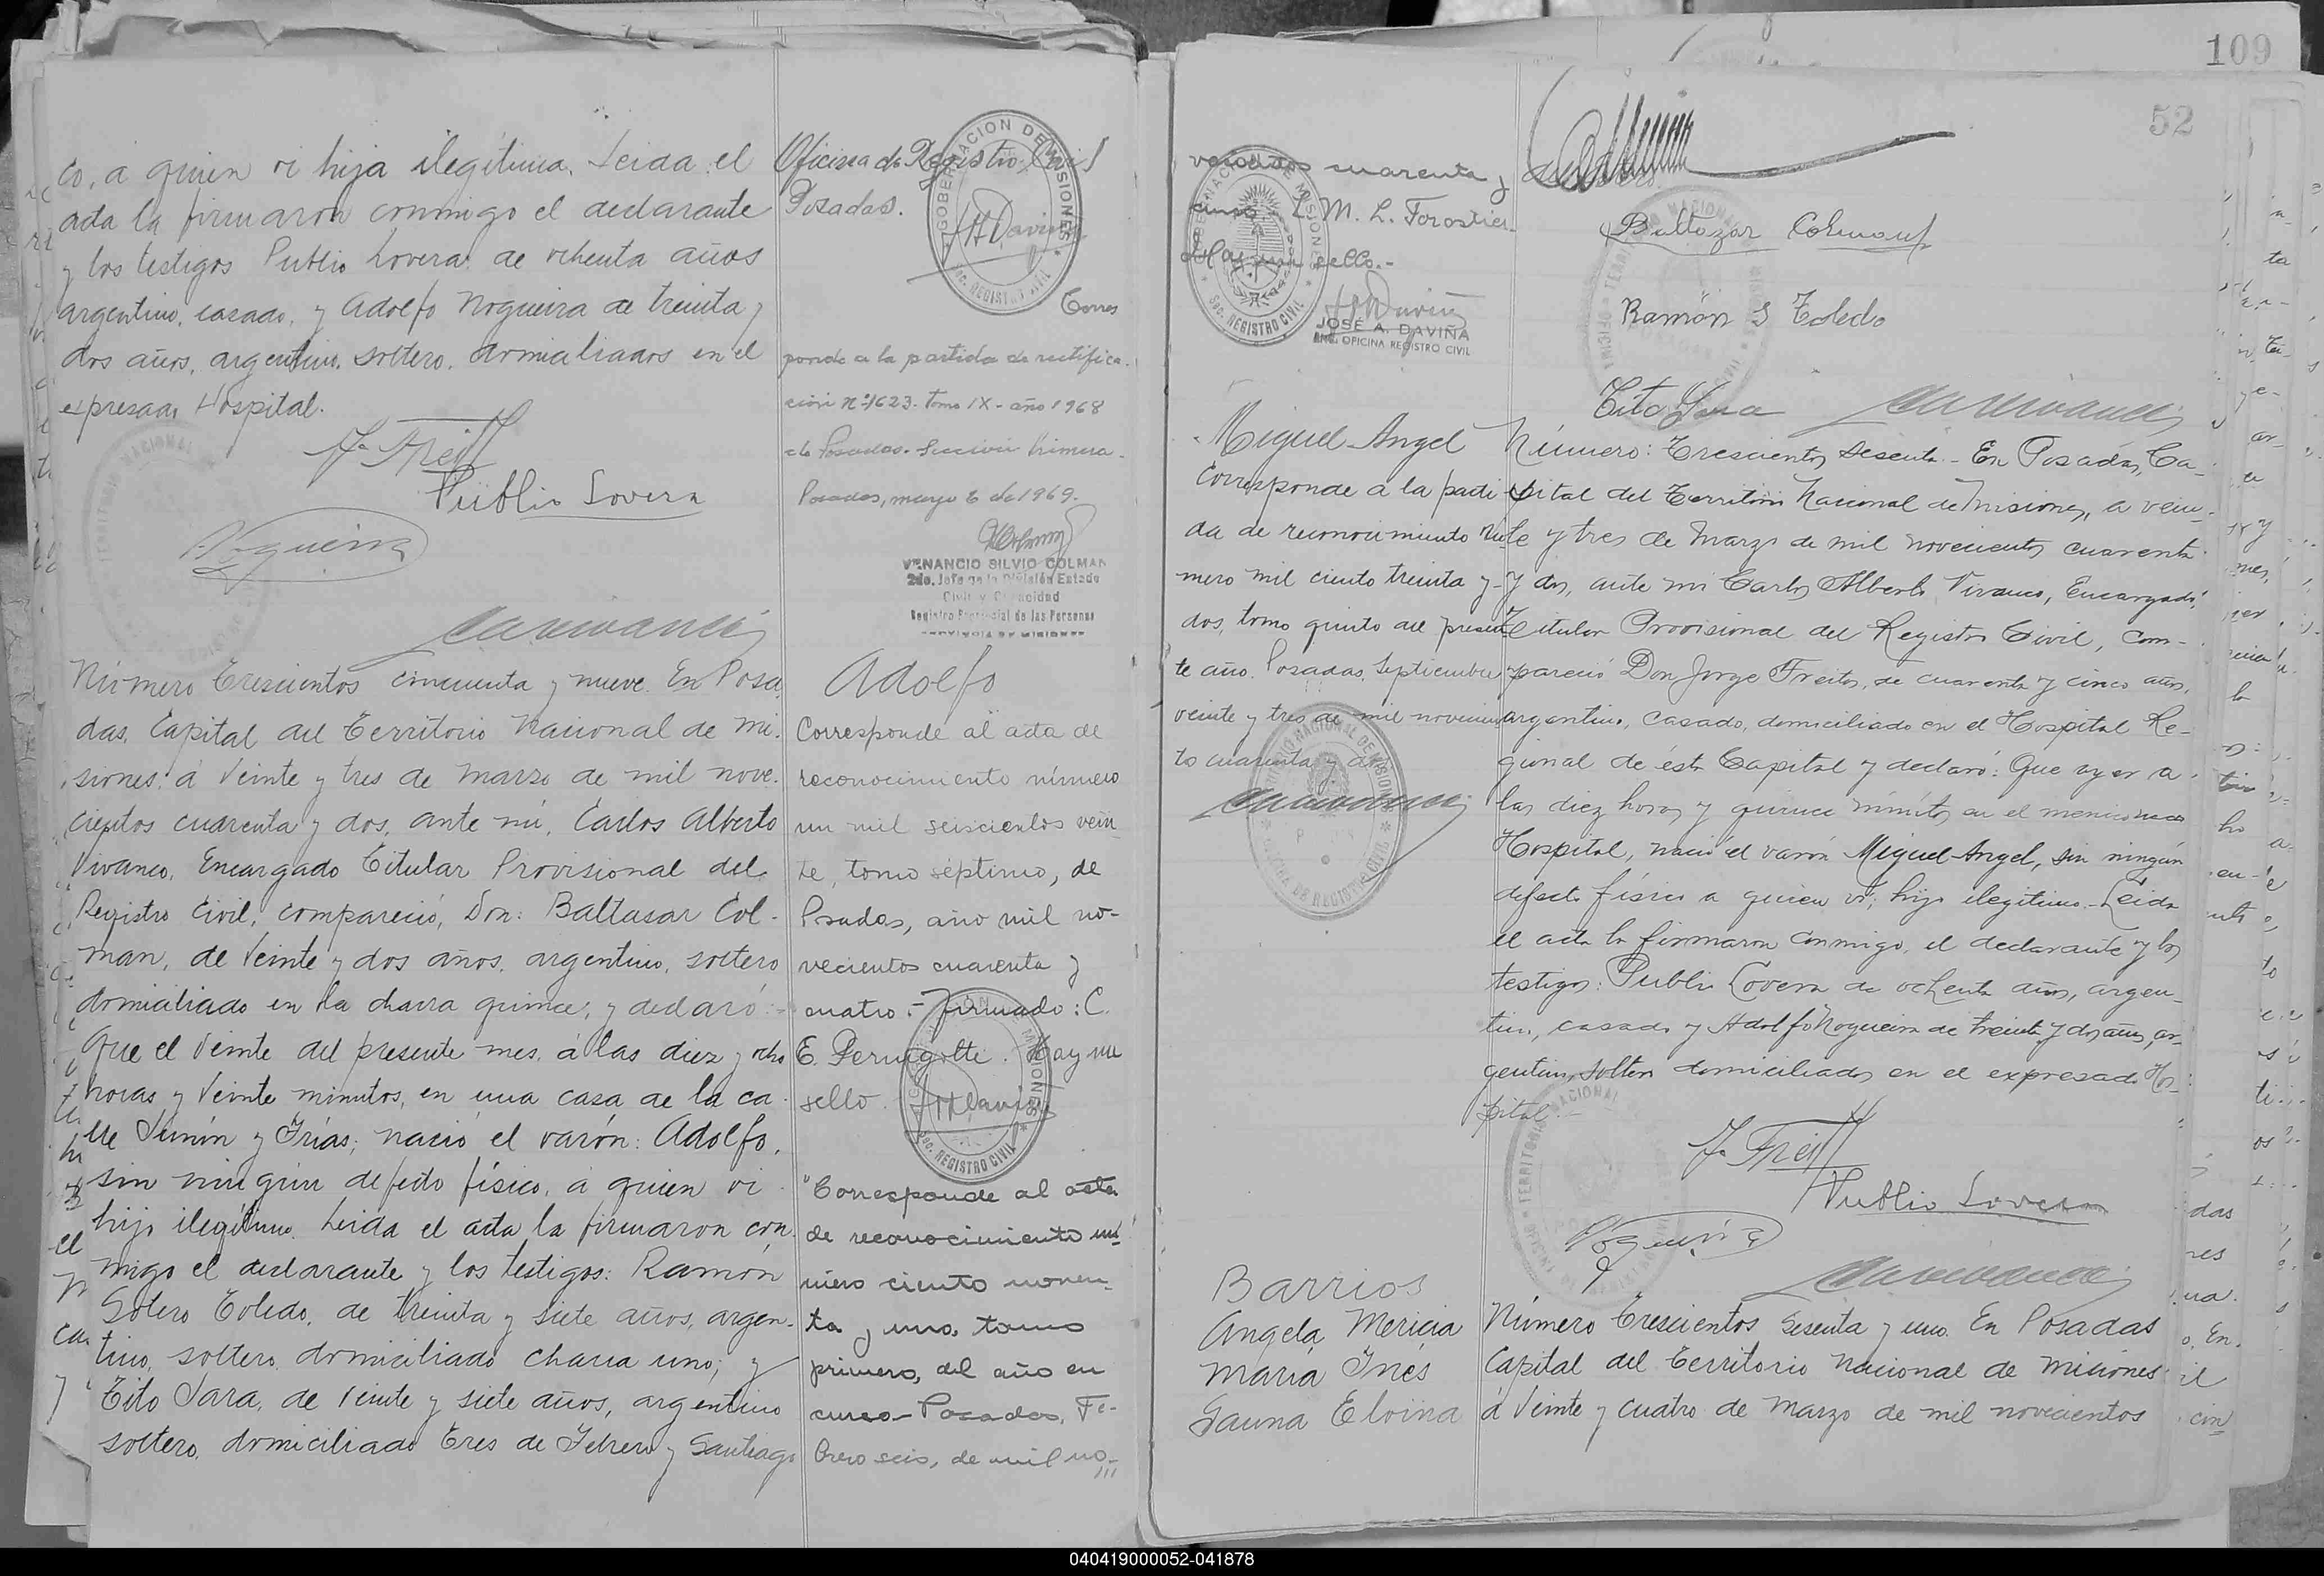 co, á quien vi hija ilegítima. Leida el
acta la firmaron conmigo el declarante
y los testigos Publio Lovera de ochenta años
argentino, casado, y Adolfo Nogueira de treinta y
dos años, argentino, soltero, domiciliados en el
expresado Hospital.
J. Freitt
Publio Lovera
Nogueira
Número Trescientos cincuenta y nueve. En Posa
das, Capital del Territorio Nacional de Mi
siones, á Veinte y tres de Marzo de mil nove
cientos cuarenta y dos, ante mí, Carlos Alberto
Vivanco, Encargado Titular Provisional del
Registro Civil, compareció, Don: Baltasar Col-
man, de Veinte y dos años, argentino, soltero
domiciliado en la chacra quince; y declaró:
Que el Veinte del presente mes, á las diez y ocho
horas y Veinte minutos, en una casa de la ca
lle Junín y Frías; nació el varón: Adolfo,
sin ningún defecto físico, á quien vi
hijo ilegítimo. Leida el acta la firmaron con
migo el declarante y los testigos: Ramón
Sotero Toledo, de treinta y siete años, argen-
tino, soltero, domiciliado chacra uno; y
Tito Jara, de Veinte y siete años, argentino
soltero, domiciliado Tres de Febrero y Santiago
Oficina de Registro Civil
Posadas.
GOBERNACION DE MISIONES
Sec. REGISTRO CIVIL
Corres
ponde a la partida de rectifica
ción Nº 1623. Tomo IX - año 1968
de Posadas. Sección Primera.
Posadas, mayo 6 de 1969.
VENANCIO SILVIO COLMAN
2do. Jefe de la División Estado
Civil y Capacidad
Registro Provincial de las Personas
PROVINCIA DE MISIONES
Adolfo
Corresponde al acta de
reconocimiento número
un mil seiscientos vein
te, tomo séptimo, de
Posadas, año mil no-
vecientos cuarenta y
cuatro.- Firmado: C.
E. Perugotti. Hay un
sello.
Sec. REGISTRO CIVIL
"Corresponde al acta
de reconocimiento nú
mero ciento noven-
ta y uno, tomo
primero, del año en
curso - Posadas, Fe-
brero seis, de mil no-
109
52
vecientos cuarenta y
cinco - L. M. L. Forastier
Hay un sello.-
Sec. REGISTRO CIVIL
JOSÉ A. DAVIÑA
ENC. OFICINA REGISTRO CIVIL
Baltazar Colman
Ramón S Toledo
Tito Jara
Miguel Angel
Corresponde a la parti
da de reconocimiento nú
mero mil ciento treinta y
dos, tomo quinto del presen
te año. Posadas, Septiembre
veinte y tres de mil novecien
to cuarenta y dos
Número: Trescientos sesenta - En Posadas, Ca-
pital del Territorio Nacional de Misiones, a vein-
te y tres de Marzo de mil novecientos cuarenta
y dos, ante mi Carlos Alberto Vivanco, Encargado
Titular Provisional del Registro Civil, com-
pareció Don Jorge Freitas, de cuarenta y cinco años,
argentino, casado, domiciliado en el Hospital Re-
gional de ésta Capital y declaró: Que ayer a
las diez horas y quince minutos en el mencionado
Hospital, nació el varón Miguel Angel, sin ningún
defecto físico a quien vi, hijo ilegítimo - Leida
el acta la firmaron conmigo, el declarante y los
testigos: Publio Lovera de ochenta años, argen-
tino, casado y Adolfo Nogueira de treinta y dos años, ar-
gentino, soltero domiciliados en el expresado Hos-
pital.-
J. Freitt
Publio Lovera
Nogueira
Barrios
Angela Mericia
María Inés
Gauna Elvina
Número Trescientos Sesenta y uno. En Posadas
Capital del Territorio Nacional de Misiones
á Veinte y cuatro de Marzo de mil novecientos
040419000052-041878